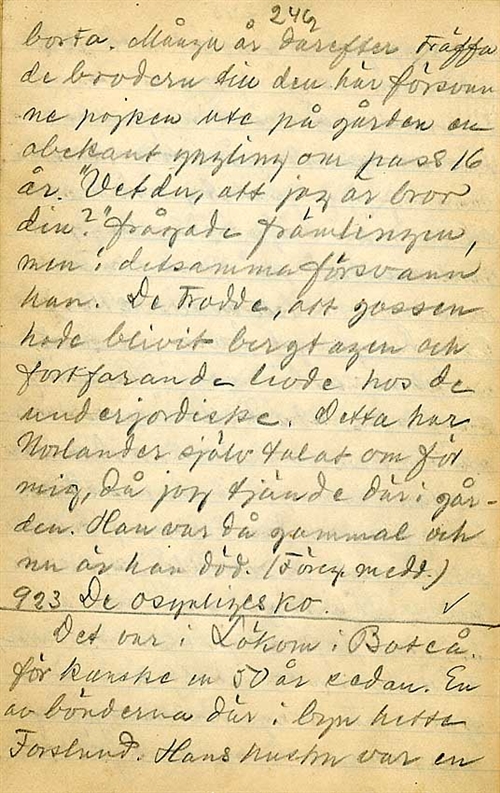 246
borta. Många år därefter träffa
de brodern till den här försvun
ne pojken ute på gården en
obekant yngling om pass 16
år. "Vet du, att jag är bror
din?" frågade främlingen,
men i detsamma försvann
han. De trodde, att gossen
hade blivit bergtagen och
fortfarande levde hos de
underjordiske. Detta har
Norlander själv talat om för
mig, då jag tjände där i går-
den. Han var då gammal och
nu är han död. (Föreg. medd.)
923 De osynliges ko. ✓
Det var i Lökom i Boteå.
för kanske en 50 år sedan. En
av bönderna där i byn hette
Forslund. Hans hustru var en